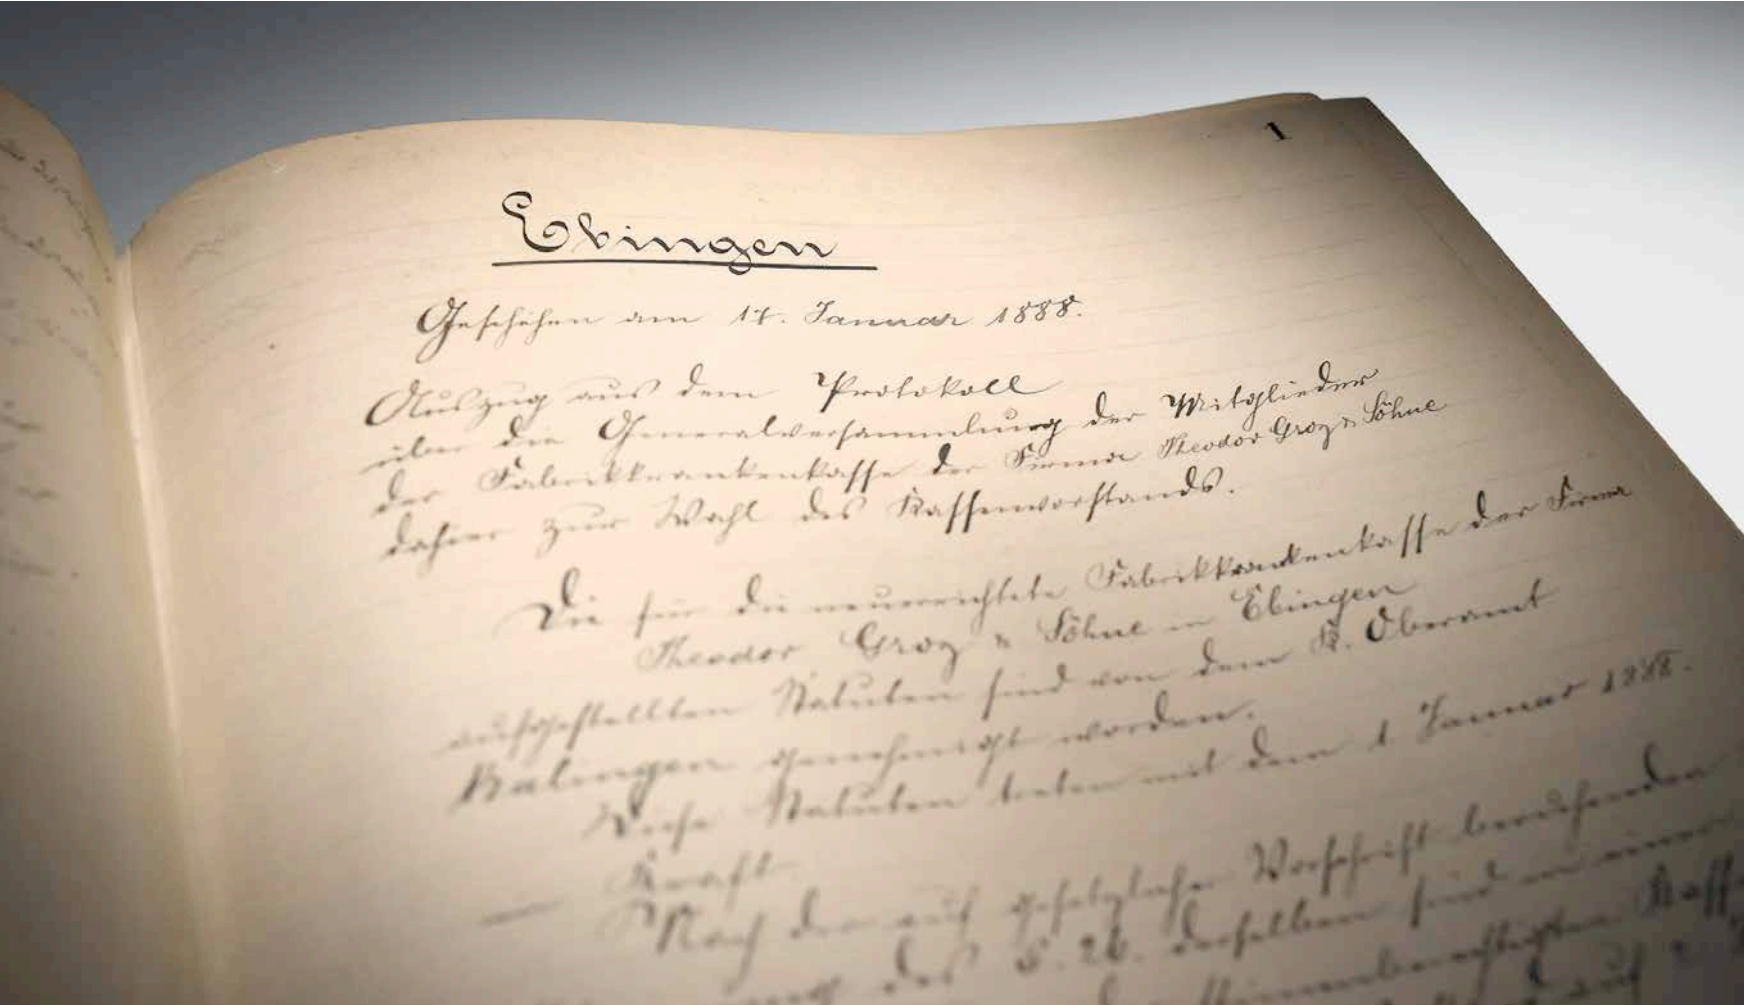 1
Ebingen
Geschehen am 14. Januar 1888.
Auszug aus dem Protokoll
über die Generalversammlung der Mitglieder
der Fabrikkrankenkasse der Firma Theodor Groz & Söhne
dahier zur Wahl des Kassenvorstands.
Die für die neuerrichtete Fabrikkrankenkasse der Firma
Theodor Groz & Söhne in Ebingen
aufgestellten Statuten sind von dem K. Oberamt
Balingen genehmigt worden.
Diese Statuten treten mit dem 1. Januar 1888.
Kraft
Nach der auf gesetzlicher Vorschrift beruhenden
des §. 26. derselben sind in einer
stimmberechtigten
auf